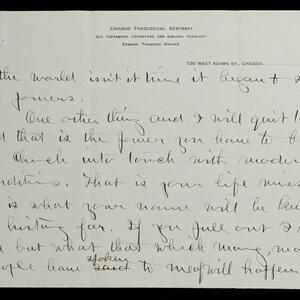 CHICAGO THEOLOGICAL SEMINARY
OLD TESTAMENT LITERATURE AND BIBLICAL THEOLOGY
EDWARD THOMSON HARPER
730 WEST ADAMS ST., CHICAGO.
the world isn't it time it began to
powers.
One other thing and I will quit
that is the power you have to
church into touch with modern
That is your life
is what your name will be
history for. If you pull out I
but what that which many,
have spoken said to me of will happen